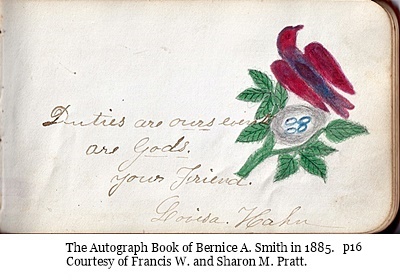 Duties are ours events
are Gods.
your Friend.
Lovisa. Hahn
The Autograph Book of Bernice A. Smith in 1885. p16
Courtesy of Francis W. and Sharon M. Pratt.